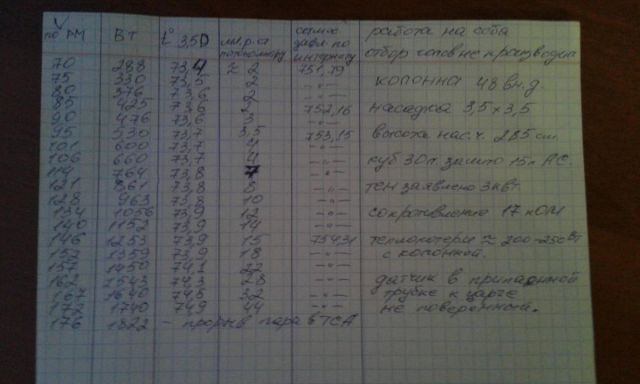 V по РМ | Вт | t° 3,5D | мм.р.ст по тономору | атм. | работа на себя
по интернету | отбор головне производил
70 | 288 | 73,4 | ≈ 2 | 751,79
75 | 330 | 73,5 | 2 | -"- | колонна 48 вн.д.
80 | 376 | 73,6 | 2 | -"-
85 | 425 | 73,6 | 2 | 752,16 | насадка 3,5х3,5
90 | 476 | 73,6 | 3 | -"-
95 | 530 | 73,7 | 3,5 | 753,15 | высота нас.ч. 285 см
101 | 600 | 73,7 | 4 | -"-
106 | 660 | 73,7 | 4 | -"- | куб 30л. залито 15л АС.
114 | 764 | 73,8 | 7 | -"-
121 | 861 | 73,8 | 8 | -"- | тэн заявлено 3 квт
128 | 963 | 73,8 | 10 | -"-
134 | 1056 | 73,9 | 12 | -"- | сопротивление 17 кОМ
140 | 1152 | 73,9 | 14 | -"-
146 | 1253 | 73,9 | 15 | 754,31 | теплопотери ≈ 200-250 Вт
152 | 1359 | 73,9 | 18 | -"- | с колонной.
1450 | 74,1 | 22 | -"-
1543 | 74,3 | 28 | -"- | датчик в припаянной
1640 | 74,5 | 32 | -"- | трубке к царге
1740 | 74,9 | 44 | -"- | не поверенный.
176 | 1822 | - прорыв пара в ТСА